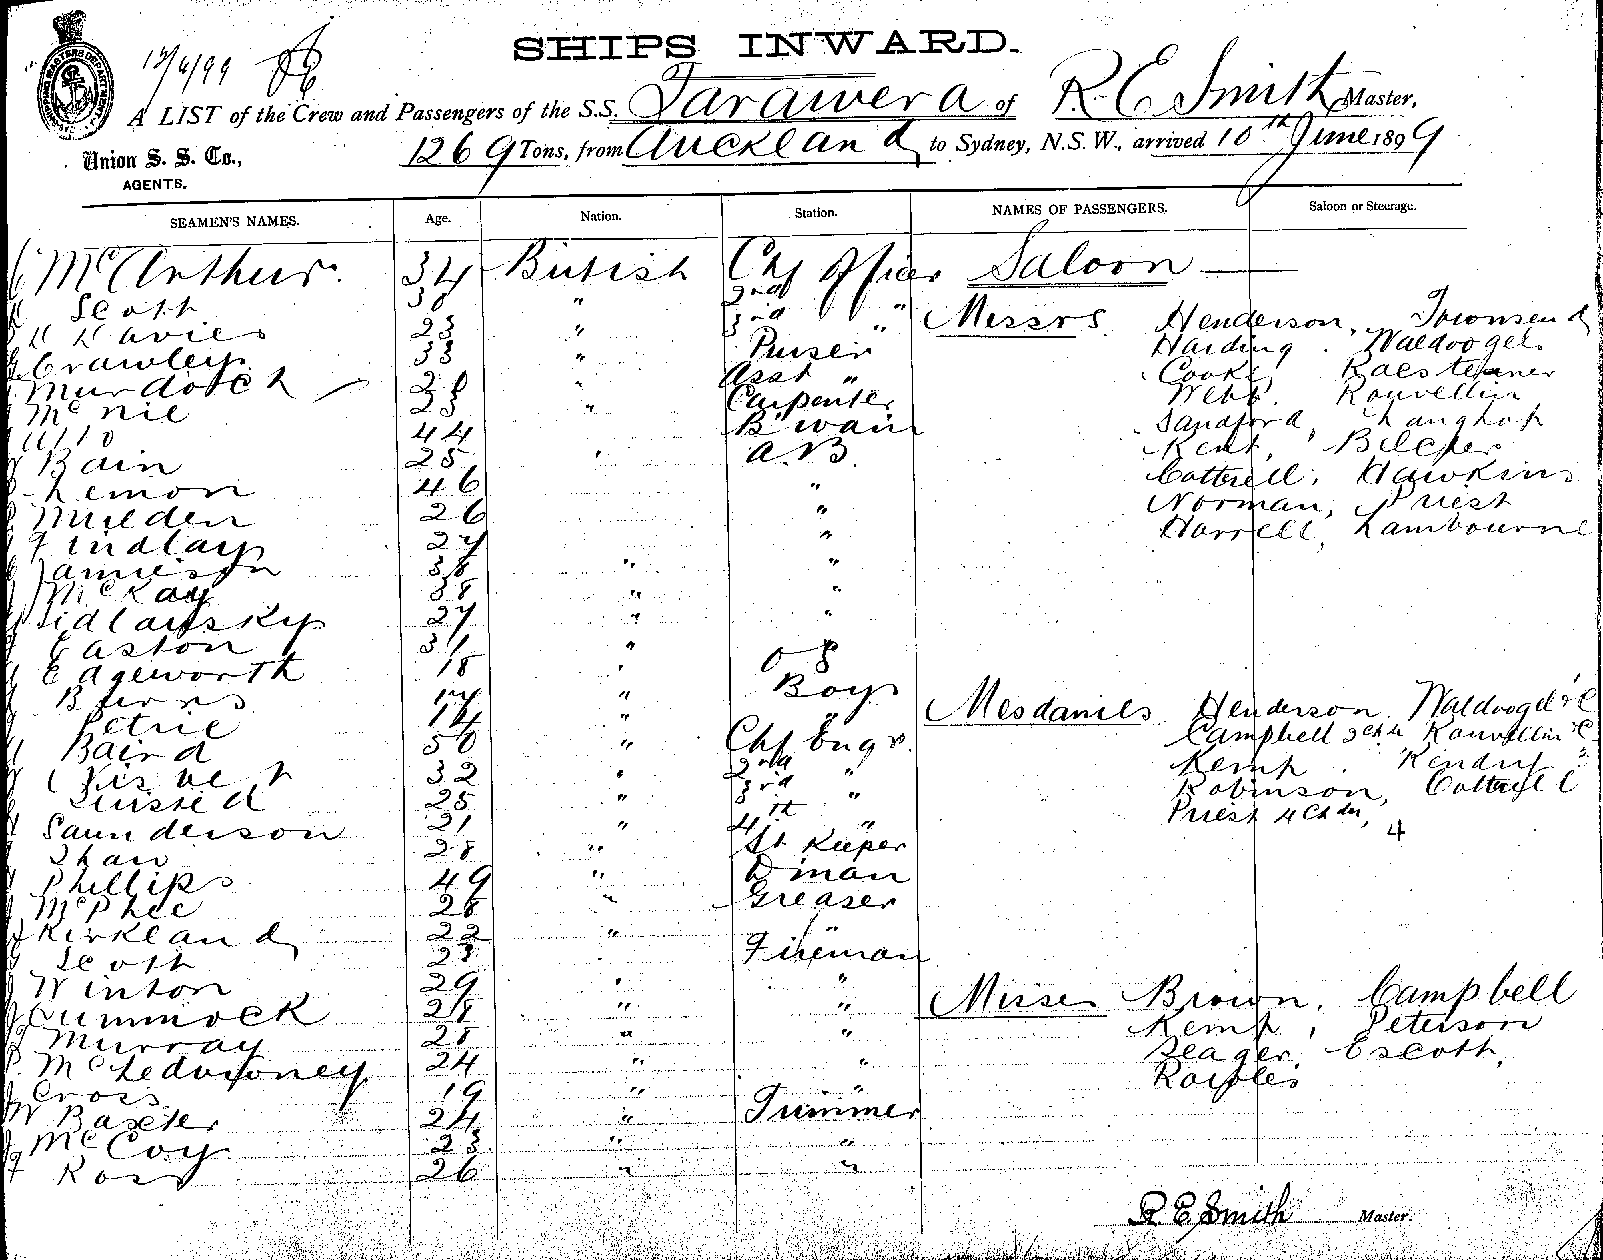 SHIPS INWARD.
A LIST of the Crew and Passengers of the S.S. Tarawera of R. E. Smith Master,
Union S. S. Co., 1269 Tons, from Auckland to Sydney, N.S.W., arrived 10th June 1899
AGENTS.
SEAMEN'S NAMES. Age. Nation. Station. NAMES OF PASSENGERS. Saloon or Steerage.
McArthur 34 British Chf Officer Saloon
Scott 30 " 2nd "
Davies 23 " 3rd " Messrs Henderson, Townsend
Crawley 33 " Purser Harding Waldvogel
Murdoch 28 " Asst " Cooke
McNie 23 " Carpenter Webb Rouvellin
44 B'wain Sandford, Langhop
Bain 25 " A.B. Kent,
Lemon 46 " Cottrell, Hawkins
26 " Norman, Priest
Findlay 27 " Harrell, Lambourne
Jamieson 38 " "
McKay 38 " "
27 " "
Easton 31 "
Edgeworth 18 " O S
Burns 17 " Boy
Petrie 14 " " Mesdames Henderson Waldvogel & C
Baird 50 " Chf Engr. Campbell 3 ch Rouvellin & C
Nisbet 32 " 2nd " Kemp
Russell 25 " 3rd " Robinson, Cottrell
Saunderson 21 " 4th " Priest 4 Chdn, 4
Shaw 28 " St Keeper
Phillips 49 " D'man
McPhee 28 " Greaser
Kirkland 22 " "
Scott 23 Fireman
Winton 29 " "
Cummock 28 " " Misses Brown, Campbell
Murray 28 " " Kemp, Peterson
24 " " Seager, Escott,
Cross 19 " "
Baxter 24 " Trimmer
McCoy 23 " "
Ross 26 " "
R E Smith Master.